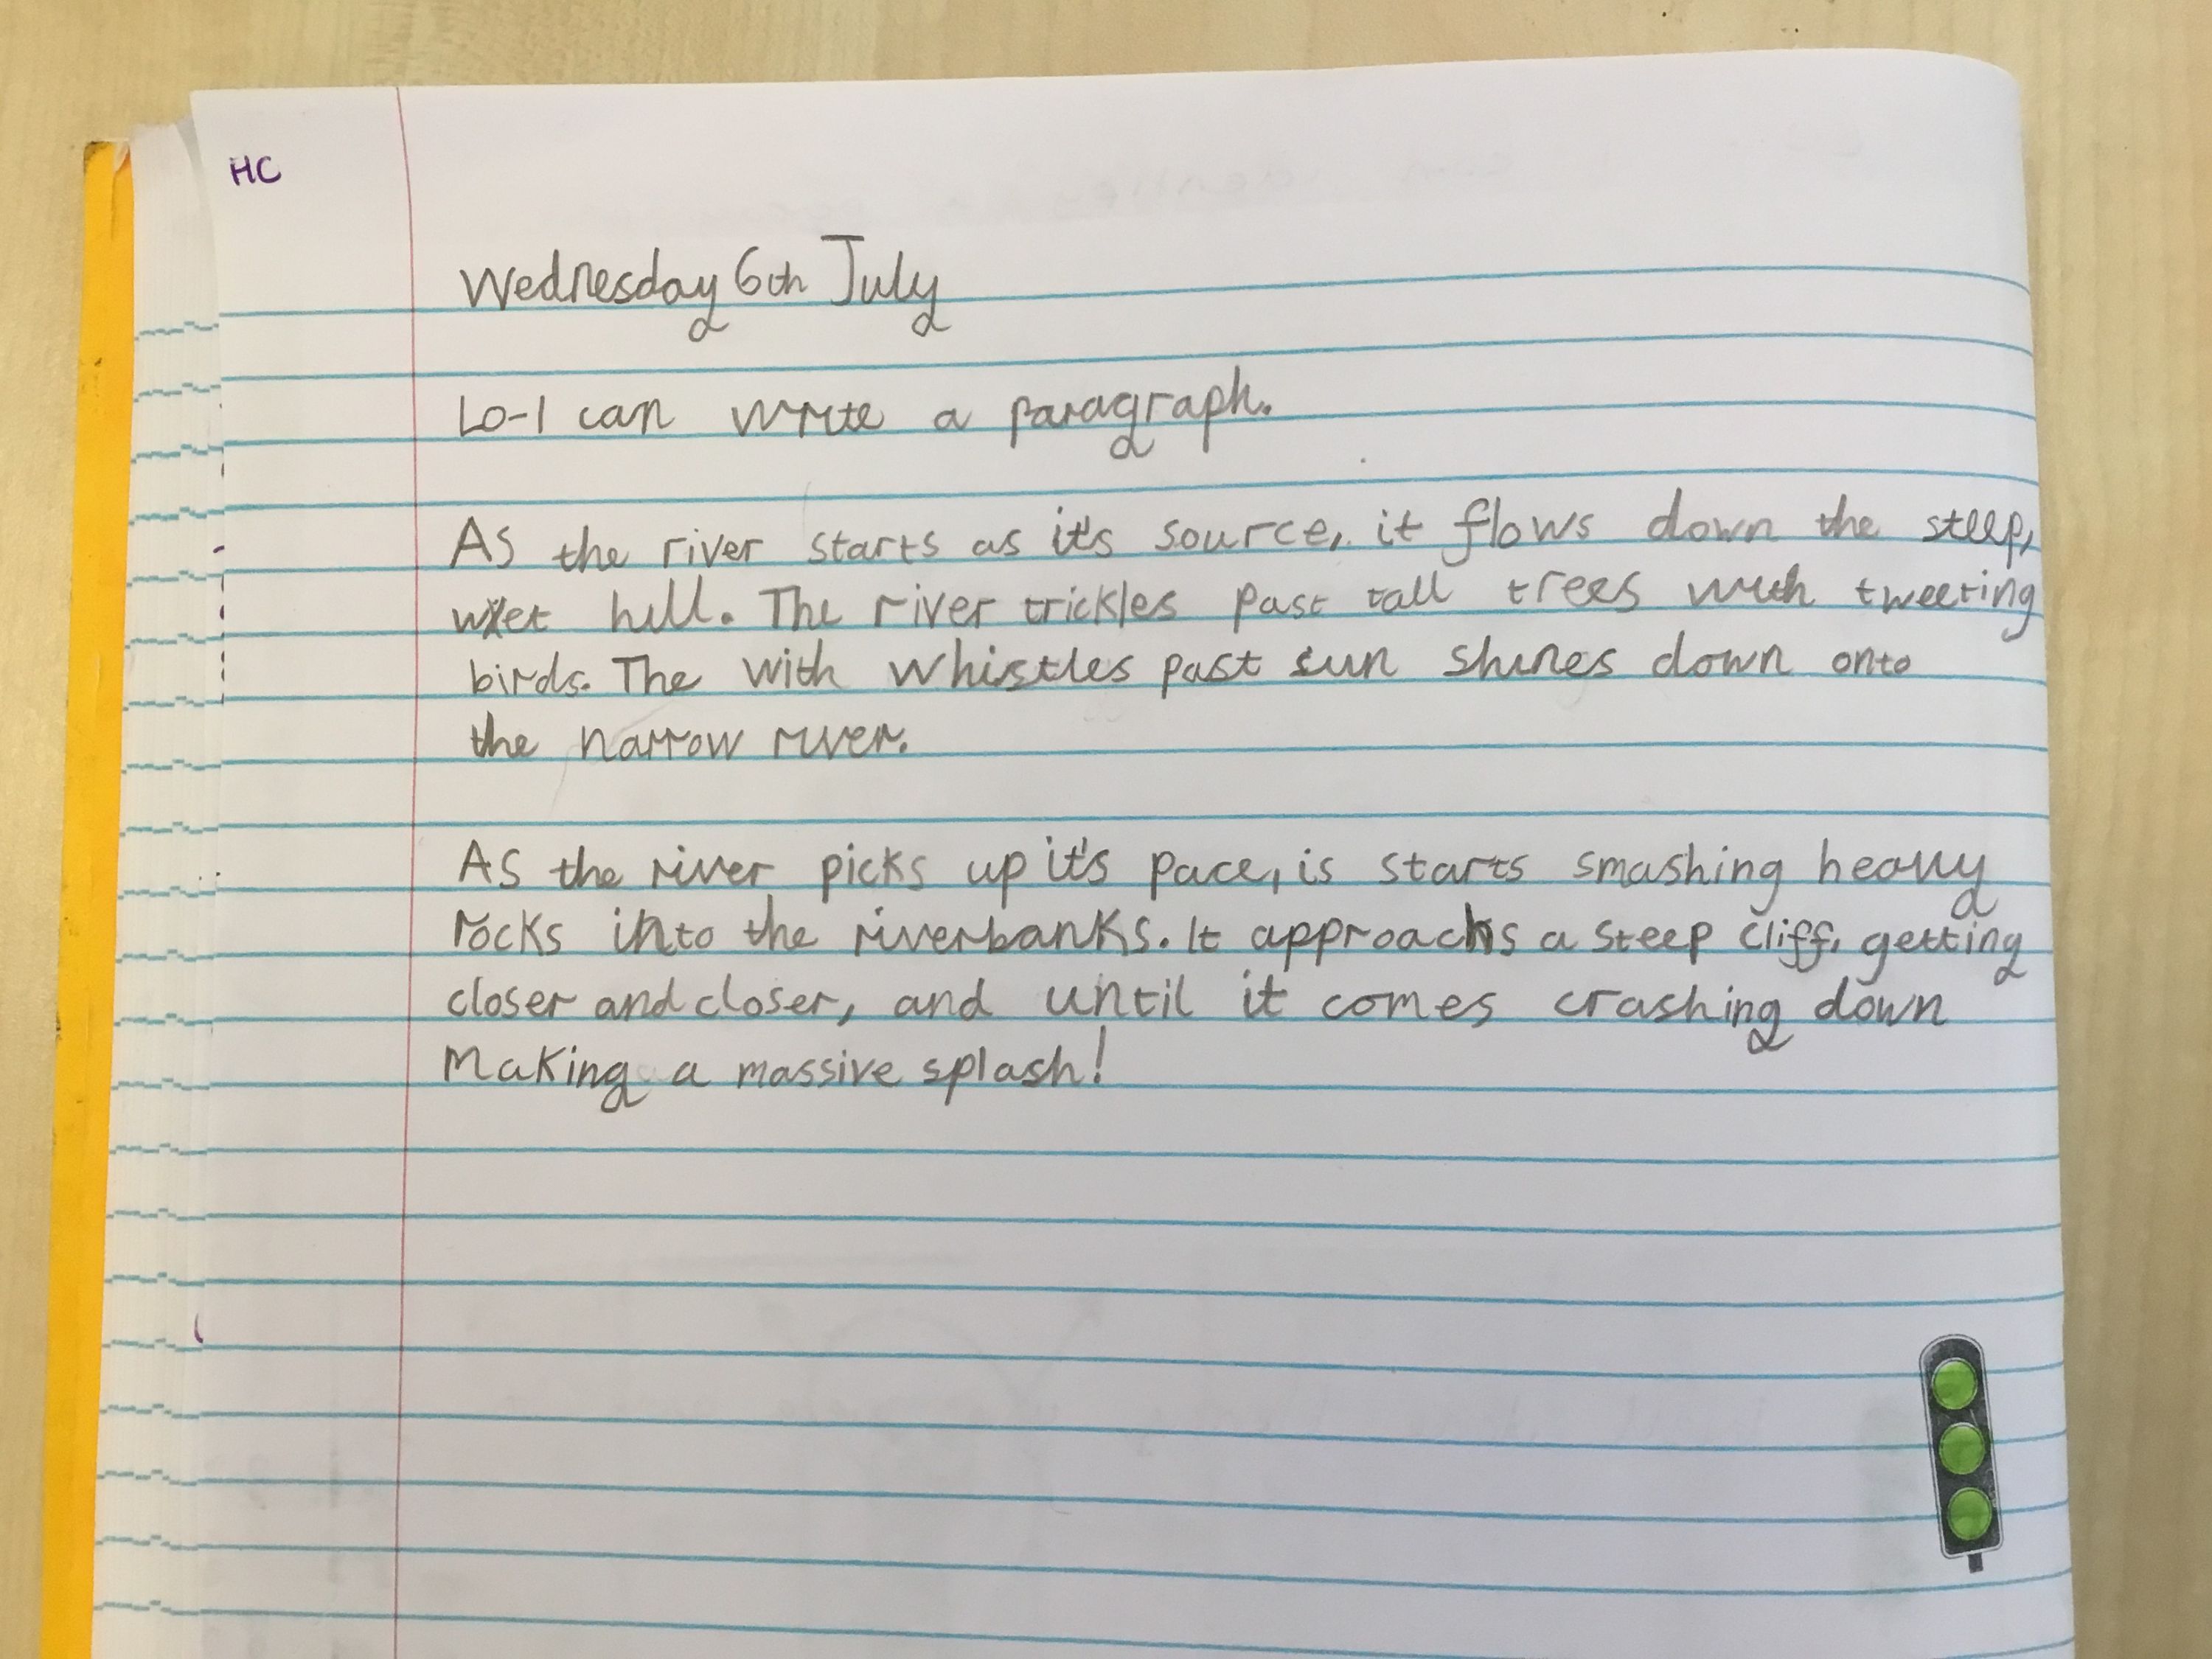 HC
Wednesday 6th July
LO-I can write a paragraph.
As the river starts as it's source, it flows down the steep,
wet hill. The river trickles past tall trees with tweeting
birds. The with whistles past sun shines down onto
the narrow river.
As the river picks up it's pace, is starts smashing heavy
rocks into the riverbanks. It approachs a steep cliff, getting
closer and closer, and until it comes crashing down
Making a massive splash!